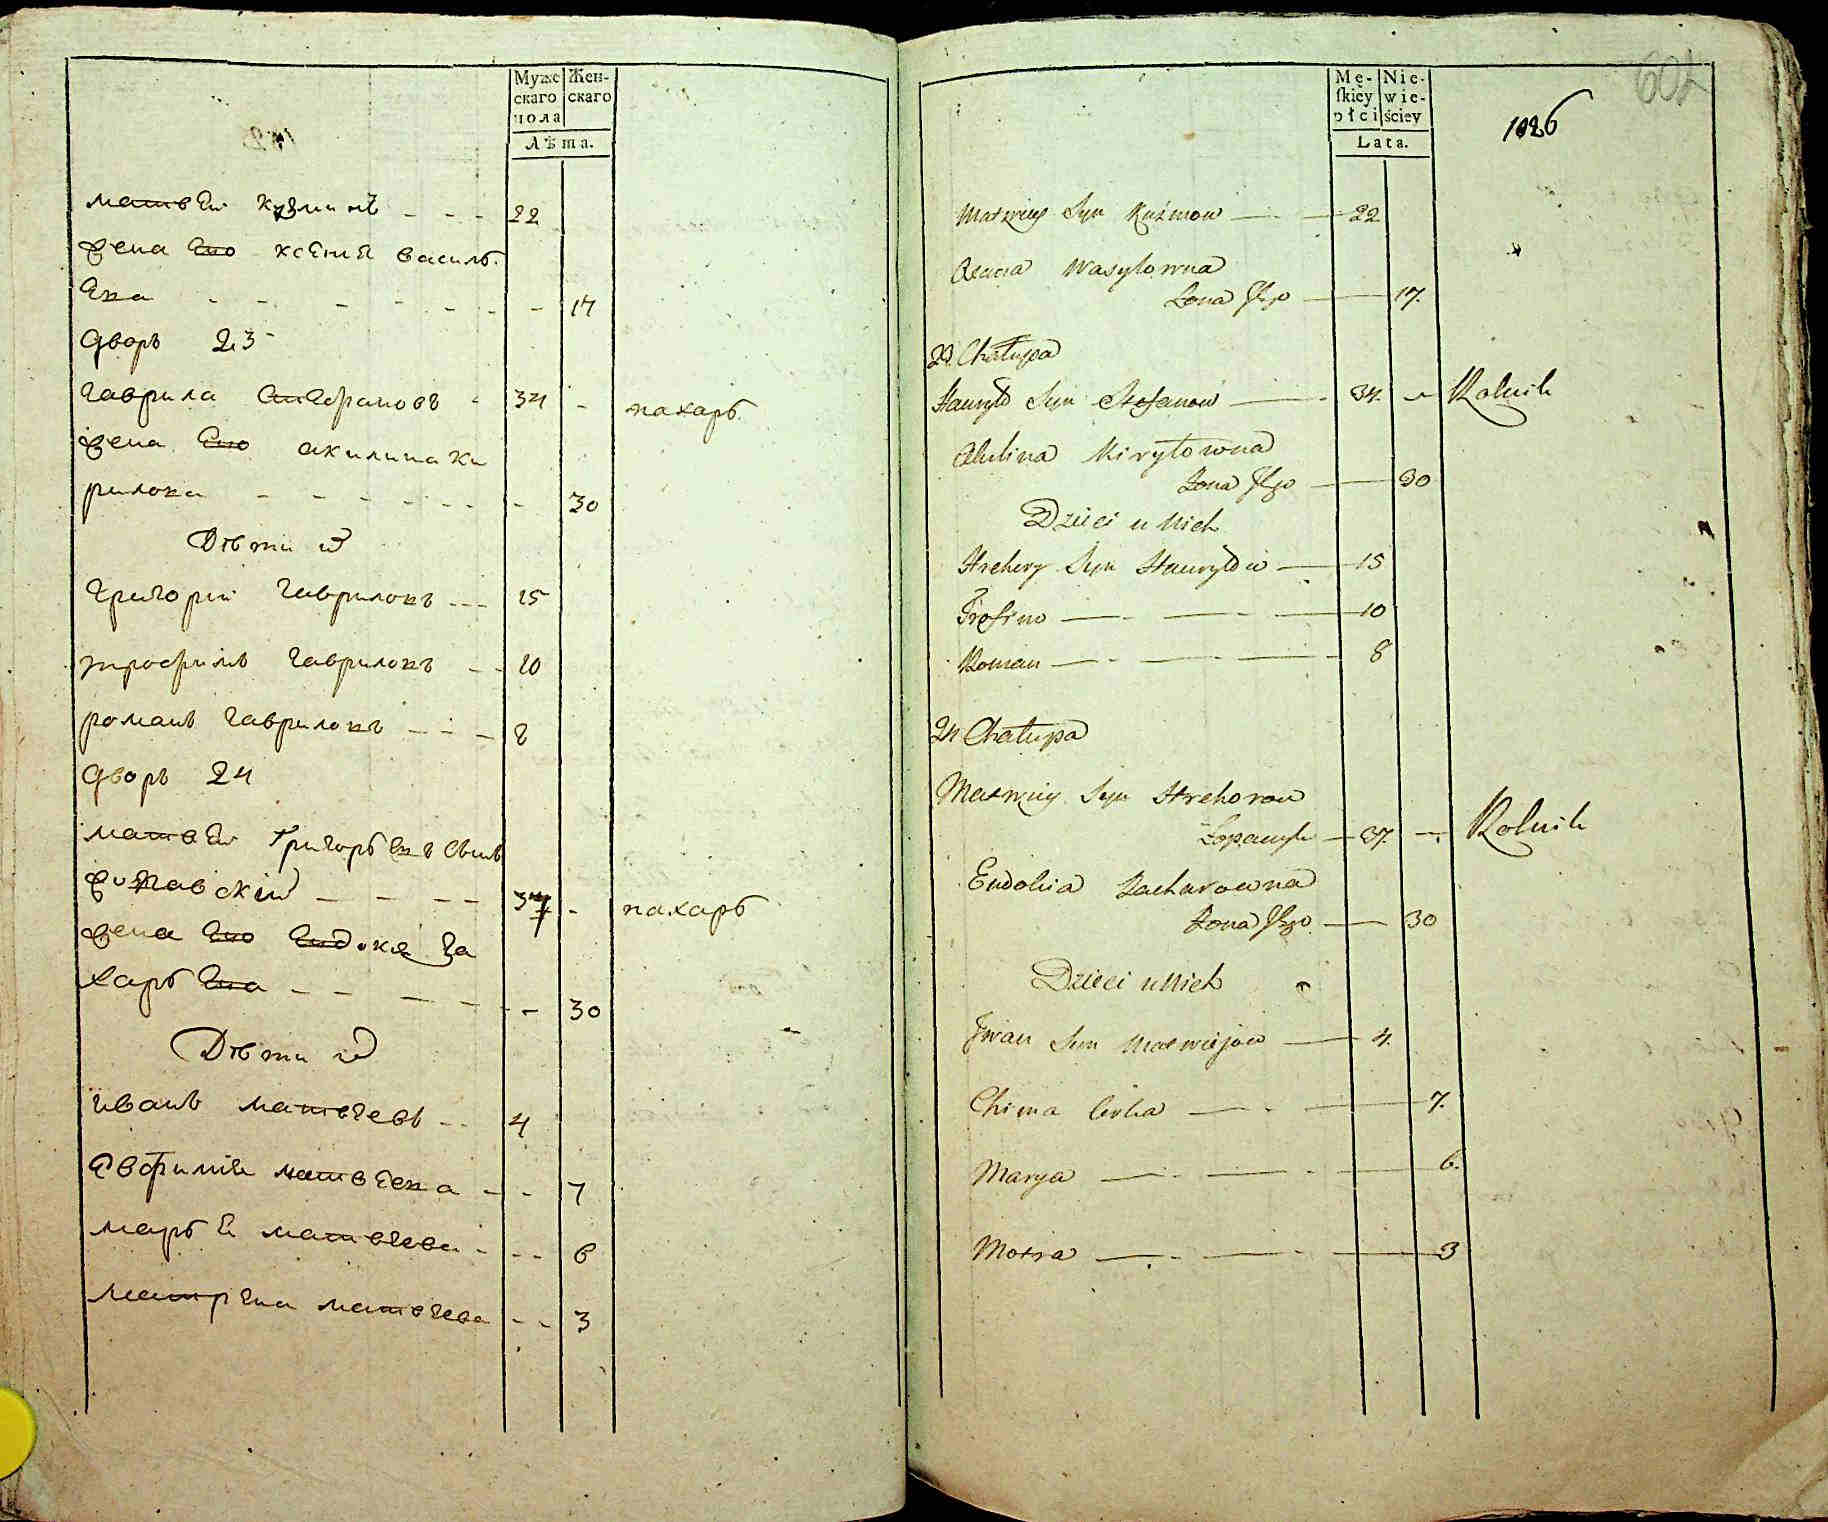 Муже Жен-
скаго скаго
пола
Лѣта.
матвей кузминъ - - - 22
жена его ксения василь.
ева - - - - - - - 17
дворъ 23
гаврила стефановъ - 34 - пахарь
жена его акилина ки
рилова - - - - - - 30
Дѣти их
григорий гавриловъ - - - 15
трофимъ гавриловъ - - 10
романъ гавриловъ - - - 8
дворъ 24
матвей григорьевъ сынъ
- - - - 37 - пахарь
жена его евдокия за
харьева - - - - - - 30
Дѣти их
иванъ матвеевъ - - 4
евфимия матвеева - - 7
марья матвеева - - - 6
матрена матвеева - - 3
Mę- Nie-
skiey wie-
płci ściey
Lata.
602
1026
Matwiey Syn Kuźmow — 22
Wasylowna
Żona Jego — 17.
23 Chałupa
Hauryło Syn Stefanow — 34. — Rolnik
Akulina Kiryłowna
Żona Jego — 30
Dzieci u Nich
Hrehory Syn Hauryłow — 15
Trofim — - — - — 10
Roman — - — - — 8
24 Chałupa
Matwiey Syn Hrehorow
— 37. — Rolnik
Eudokia Zacharowna
Żona Jego — 30
Dzieci u Nich
Jwan Syn Matwiejow — 4.
Chima Corka — - — 7.
Marya — - — - — 6.
Motra — - — - — 3